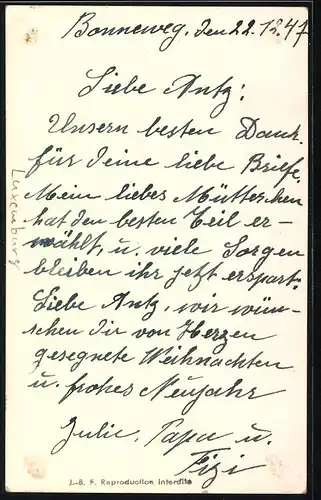 Bonneweg, den 22.12.47
Liebe Antz:
Unsern besten Dank
für deine liebe Briefe.
Mein liebes Mütterchen
hat den besten Teil er-
wählt, u. viele Sorgen
bleiben ihr jetzt erspart.
Liebe Antz, wir wün-
schen dir von Herzen
gesegnete Weihnachten
u. frohes Neujahr
Julie, Papa u.
Fizi
Luxemburg
J.-B. F. Reproduction interdite